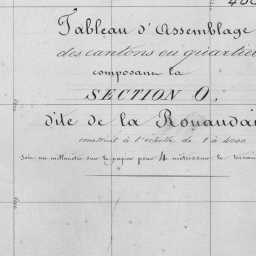 400
Tableau d'Assemblage
des cantons ou quartie
composant la
SECTION O,
dite de la Rouauda
construit à l'échelle de 1 à 4000
soit un millimètre sur le papier pour 4 mètres sur le terrain